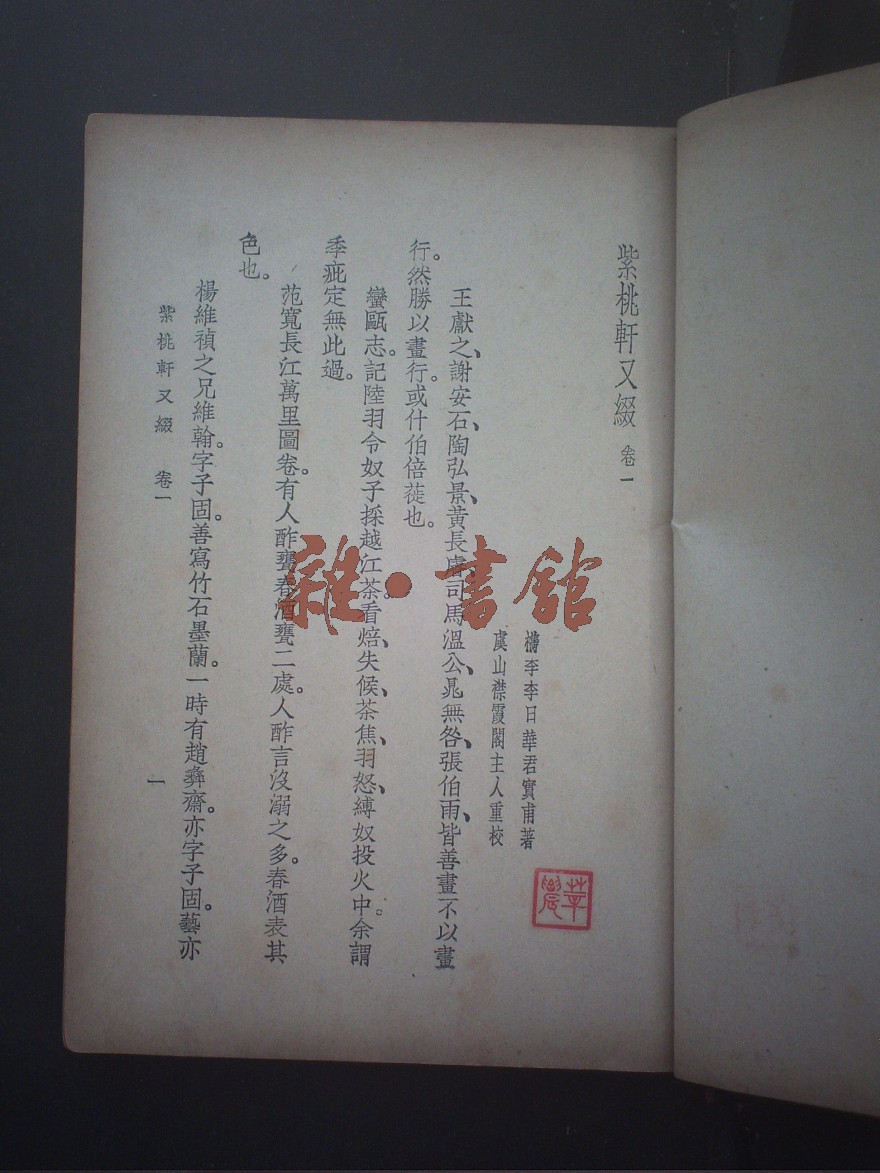 紫桃軒又綴 卷一
檇李李日華君實甫著
虞山襟霞閣主人重校
王獻之、謝安石、陶弘景、黃長睿、司馬溫公、晁無咎、張伯雨、皆善畫不以畫
行。然勝以畫行。或什伯倍蓰也。
蠻甌志。記陸羽令奴子採越江茶。看焙、失候、茶焦、羽怒、縛奴投火中。余謂
季疵定無此過。
范寬長江萬里圖卷。有人酢甕春酒甕二處。人酢言沒溺之多。春酒表其
色也。
楊維禎之兄維翰。字子固。善寫竹石墨蘭。一時有趙彝齋。亦字子固。藝亦
紫桃軒又綴 卷一
一
雜·書館